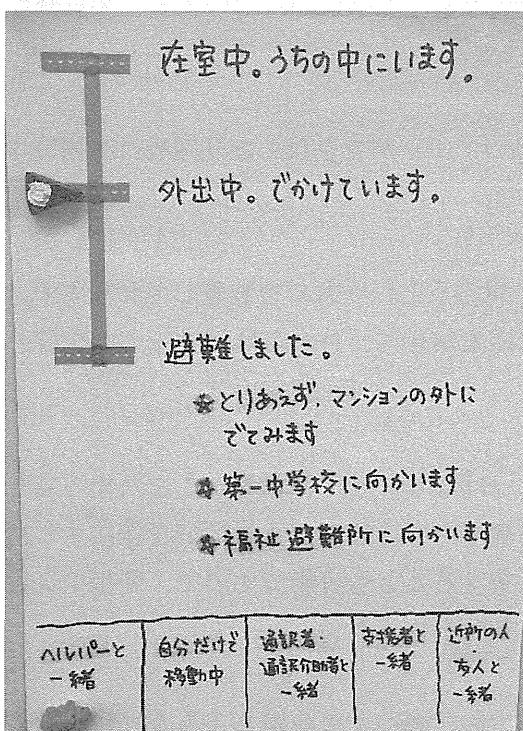 在室中。うちの中にいます。
外出中。でかけています。
避難しました。
☆とりあえず、マンションの外に
でてみます
☆第一中学校に向かいます
☆福祉避難所に向かいます
ヘルパーと
一緒
自分だけで
移動中
通訳者・
通訳介助者と
一緒
支援者と
一緒
近所の人
・
友人と
一緒